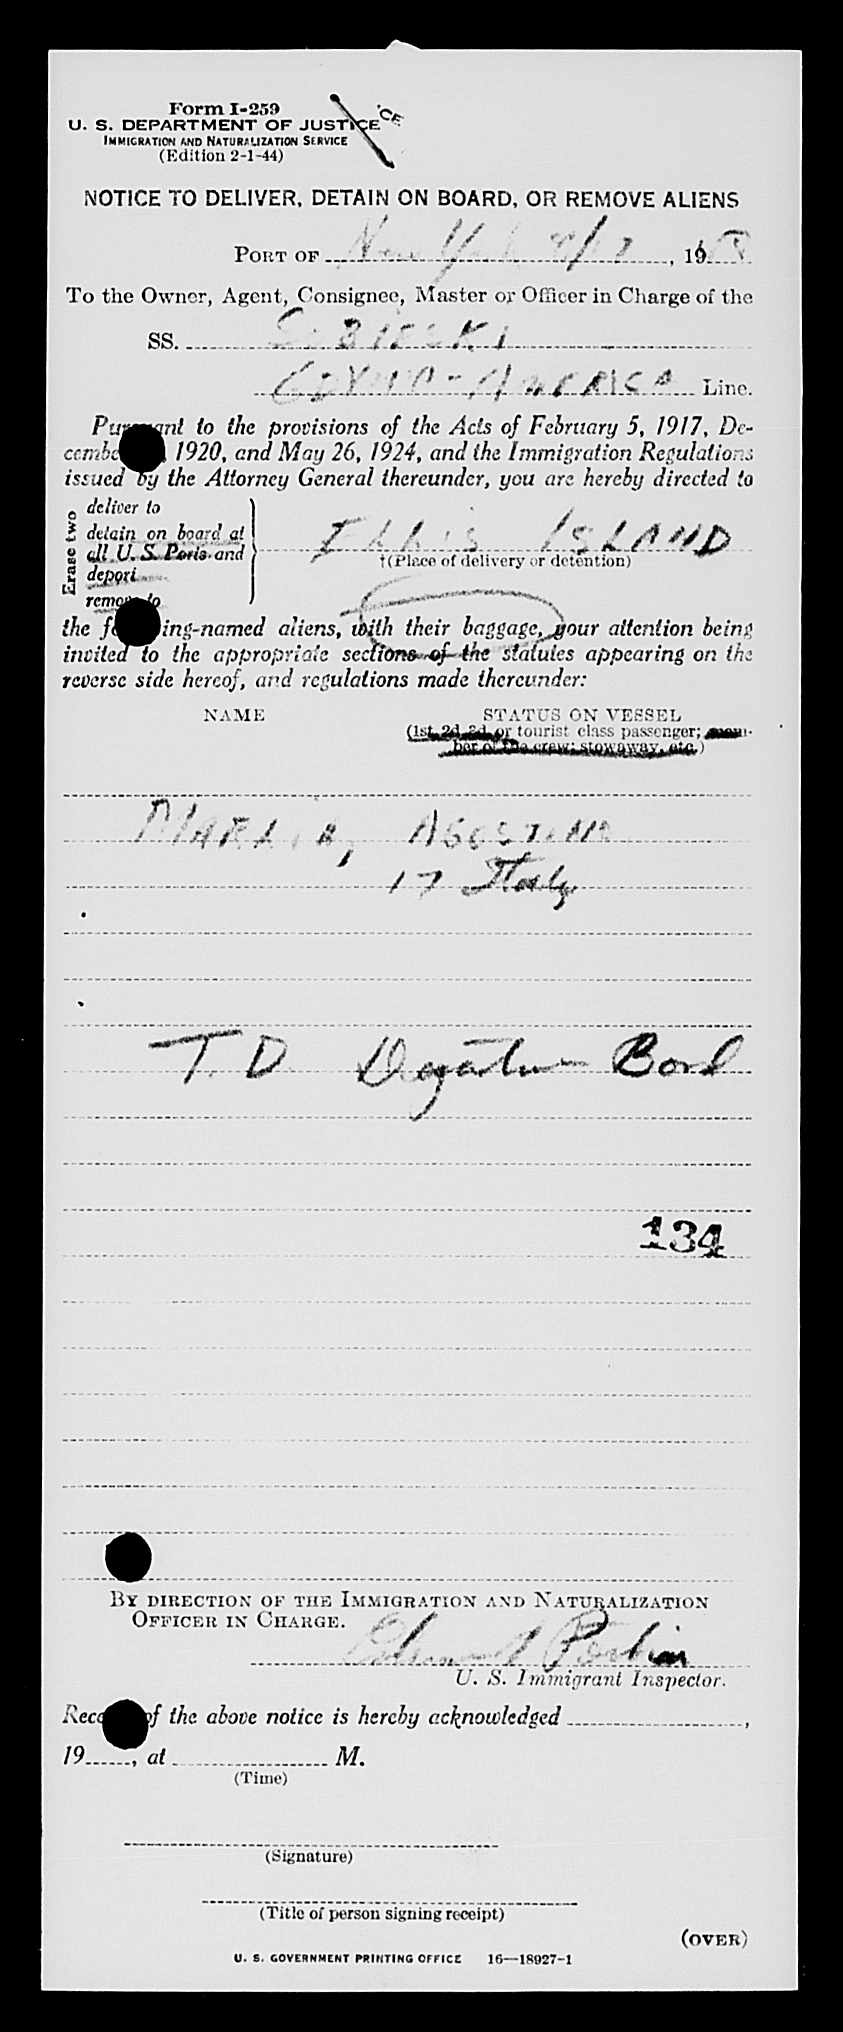 Form I-259
U. S. DEPARTMENT OF JUSTICE
IMMIGRATION AND NATURALIZATION SERVICE
(Edition 2-1-44)
NOTICE TO DELIVER, DETAIN ON BOARD, OR REMOVE ALIENS
PORT OF New York, 19
To the Owner, Agent, Consignee, Master or Officer in Charge of the
SS. SOBIESKI
GDYNIA-AMERICA Line.
Pursuant to the provisions of the Acts of February 5, 1917, De-
cember 1920, and May 26, 1924, and the Immigration Regulations
issued by the Attorney General thereunder, you are hereby directed to
Erase two
deliver to
detain on board at
all U. S. Ports and
deport
remove to
ELLIS ISLAND
†(Place of delivery or detention)
the following-named aliens, with their baggage, your attention being
invited to the appropriate sections of the statutes appearing on the
reverse side hereof, and regulations made thereunder:
NAME STATUS ON VESSEL
(1st, 2d, 3d, or tourist class passenger; mem-
ber of the crew; stowaway, etc.)
AGOSTINO
17 Italy
T. D.
134
BY DIRECTION OF THE IMMIGRATION AND NATURALIZATION
OFFICER IN CHARGE.
U. S. Immigrant Inspector.
Receipt of the above notice is hereby acknowledged ,
19 , at M.
(Time)
(Signature)
(Title of person signing receipt)
(OVER)
U. S. GOVERNMENT PRINTING OFFICE 16—18927-1